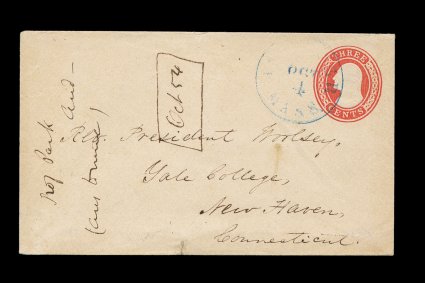 THREE
CENTS
OCT
4
MASS
Oct 54
Rev. President Woolsey,
Yale College,
New Haven,
Connecticut.
Prof Park And